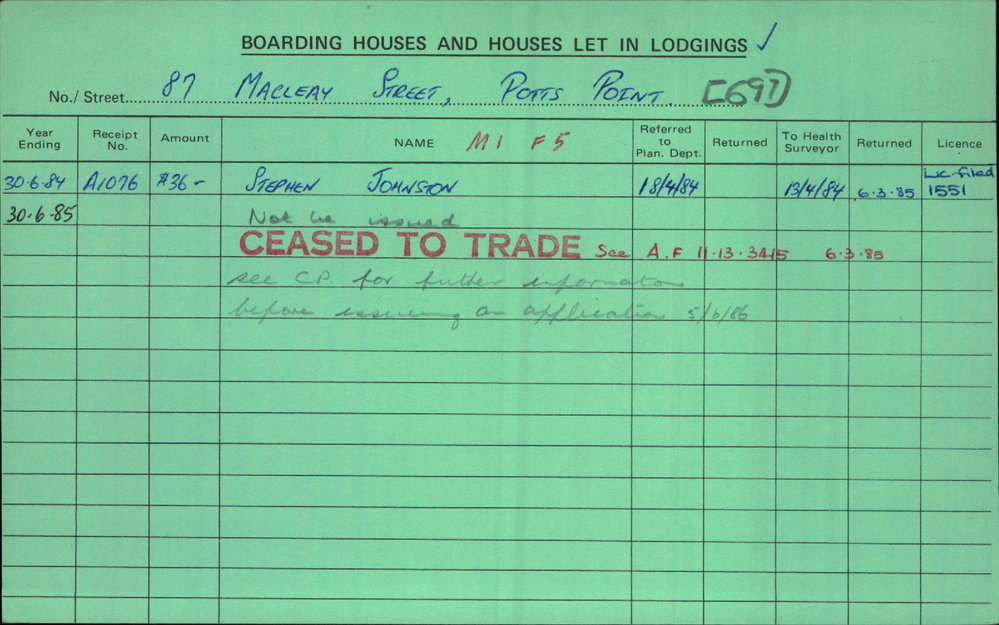 BOARDING HOUSES AND HOUSES LET IN LODGINGS ✓
No./ Street 87 MACLEAY STREET, POTTS POINT. [697]
Year Ending Receipt No. Amount NAME M1 F5 Referred to Plan. Dept. Returned To Health Surveyor Returned Licence
30.6.84 A1076 $36- STEPHEN JOHNSTON 18/4/84 13/4/84 6.3.85 Lic filed 1551
30.6.85 Not be issued
CEASED TO TRADE See A.F 11.13.3415 6.3.85
see C.P. for futher information
before issuing an application 5/6/86